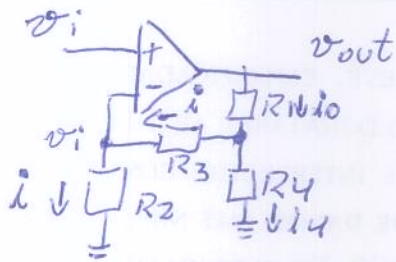 vi
+
-
vout
i
R1
i0
vi
R3
i
R2
R4
i4